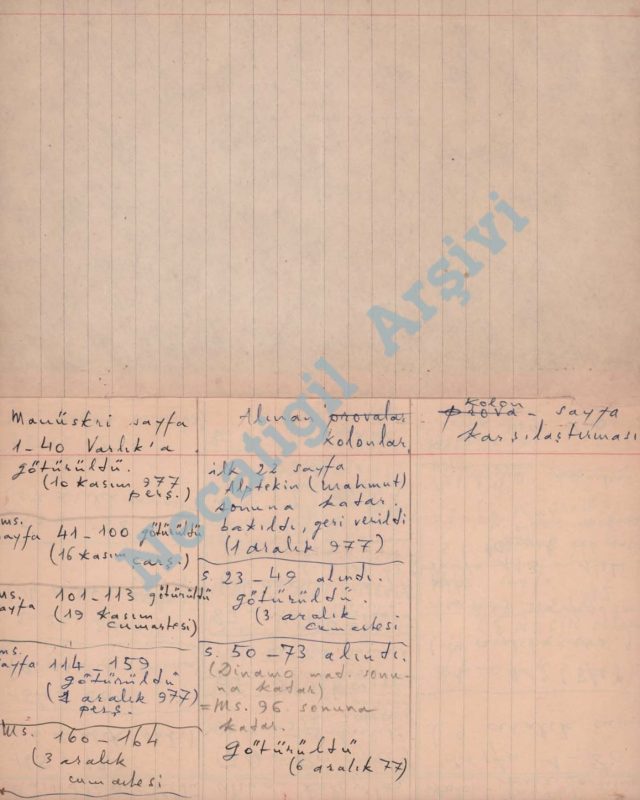 Necatigil Arşivi
Manüskri sayfa
1-40 Varlık'a
götürüldü.
(10 Kasım 977
perş.)
ms.
ayfa 41-100 götürüldü
(16 Kasım çarş.)
ms.
ayfa 101-113 götürüldü
(19 Kasım
cumartesi)
ms.
ayfa 114-159
götürüldü
(1 aralık 977)
perş.
Ms. 160-164
(3 aralık
cumartesi
Alınan provalar
kolonlar
ilk 22 sayfa
(Mahmut)
sonuna kadar.
bakıldı, geri verildi
(1 aralık 977)
s. 23-49 alındı.
götürüldü.
(3 aralık
cumartesi
s. 50-73 alındı.
(Dinamo mad. sonu-
na kadar)
=Ms. 96 sonuna
kadar.
götürüldü
(6 aralık 77)
kolon
prova - sayfa
karşılaştırması